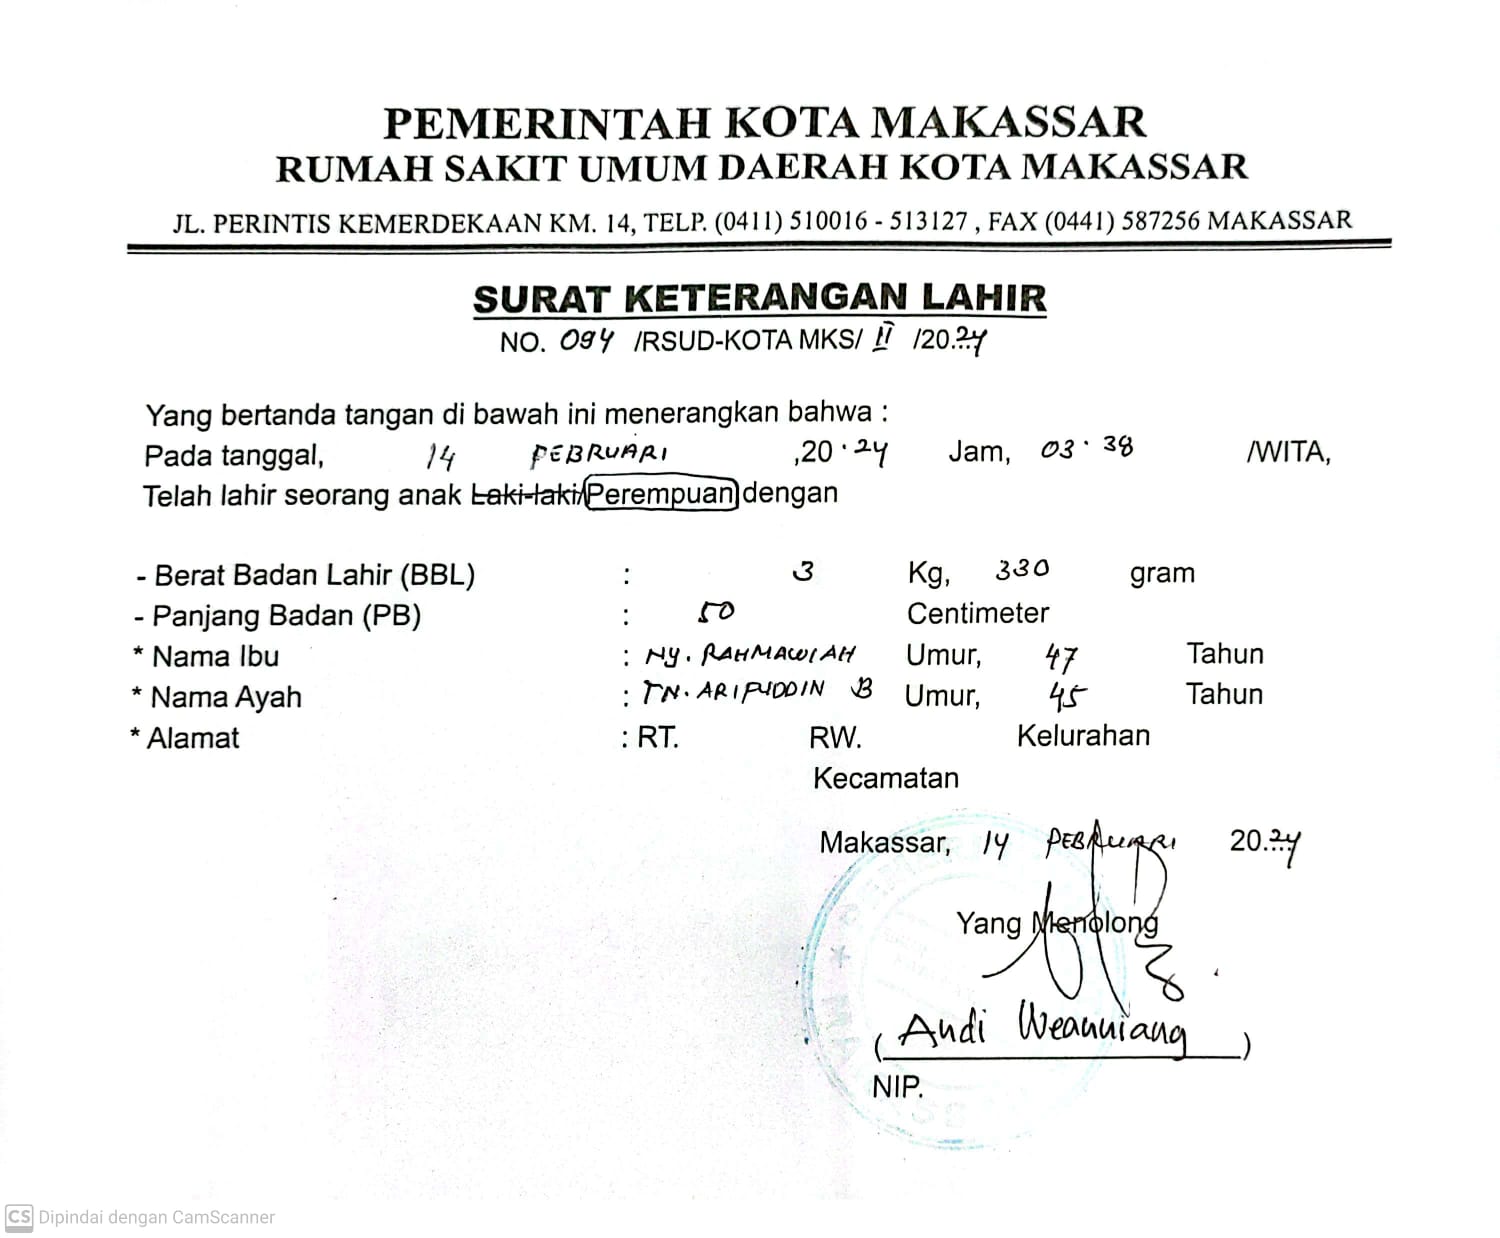 PEMERINTAH KOTA MAKASSAR
RUMAH SAKIT UMUM DAERAH KOTA MAKASSAR
JL. PERINTIS KEMERDEKAAN KM. 14, TELP. (0411) 510016 - 513127 , FAX (0441) 587256 MAKASSAR
SURAT KETERANGAN LAHIR
NO. 094 /RSUD-KOTA MKS/ II /20.24
Yang bertanda tangan di bawah ini menerangkan bahwa :
Pada tanggal, 14 PEBRUARI ,20.24 Jam, 03.38 /WITA,
Telah lahir seorang anak Laki-laki/Perempuan dengan
- Berat Badan Lahir (BBL) : 3 Kg, 330 gram
- Panjang Badan (PB) : 50 Centimeter
* Nama Ibu : NY. RAHMAWIAH Umur, 47 Tahun
* Nama Ayah : TN. ARIFUDDIN B Umur, 45 Tahun
* Alamat : RT. RW. Kelurahan
Kecamatan
Makassar, 14 PEBRUARI 20.24
Yang Menolong
( Andi Weanniang )
NIP.
CS Dipindai dengan CamScanner